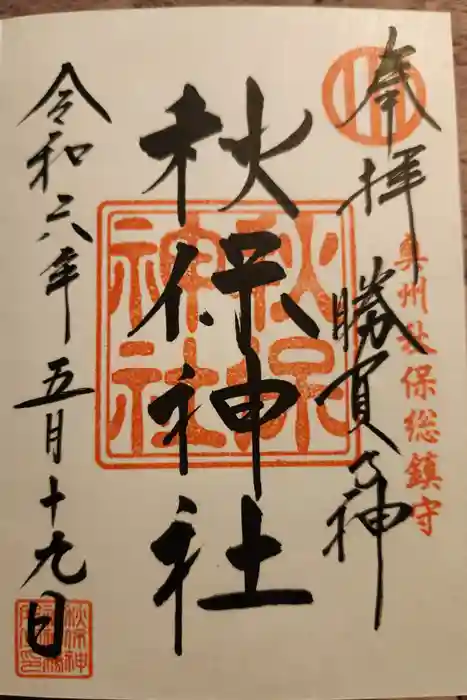 奉拝
勝負の神
奥州秋保総鎮守
秋保神社
秋保神社
令和六年五月十九日